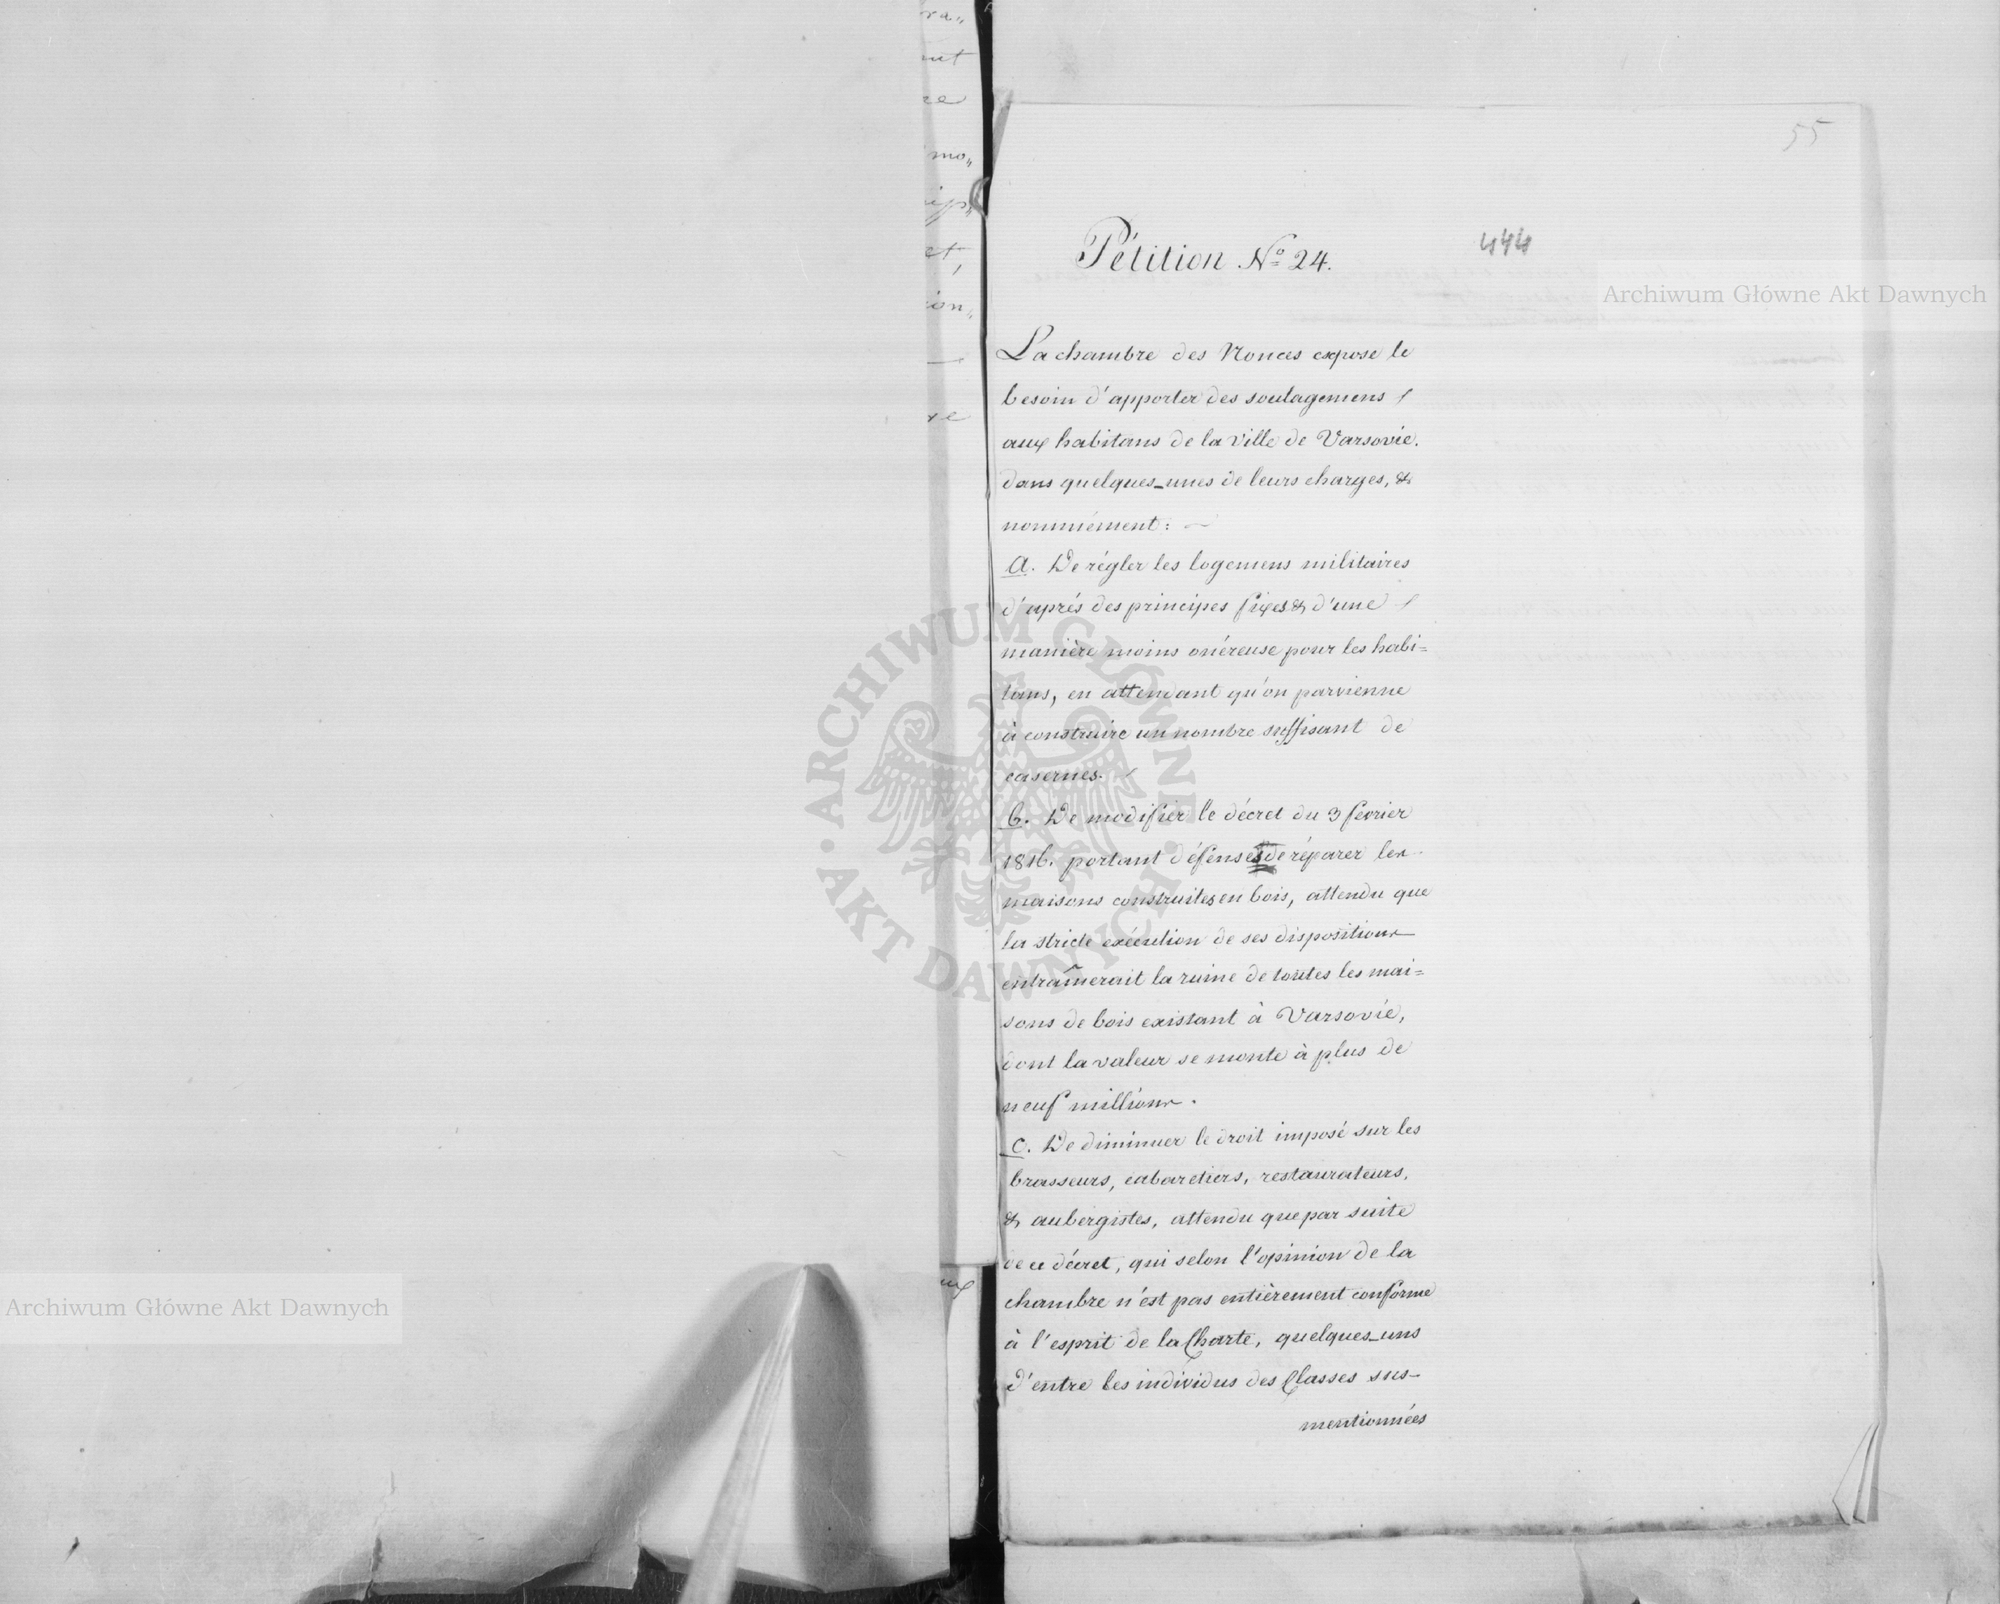 55
Pétition No 24.
444
La chambre des Nonces expose le
besoin d'apporter des soulagemens
aux habitans de la ville de Varsovie.
dans quelques-unes de leurs charges, &
nommément:
a. De régler les logemens militaires
d'après des principes fixes & d'une
manière moins onéreuse pour les habi=
tans, en attendant qu'on parvienne
à construire un nombre suffisant de
casernes.
b. De modifier le décret du 3 fevrier
1816. portant défenses de réparer les
maisons construites en bois, attendu que
la stricte exécution de ses dispositions
entraînerait la ruine de toutes les mai=
sons de bois existant à Varsovie,
dont la valeur se monte à plus de
neuf millions.
c. De diminuer le droit imposé sur les
brasseurs, cabaretiers, restaurateurs,
& aubergistes, attendu que par suite
de ce décret, qui selon l'opinion de la
chambre n'est pas entièrement conforme
à l'esprit de la Charte, quelques-uns
d'entre les individus des Classes sus-
mentionnées
Archiwum Główne Akt Dawnych
Archiwum Główne Akt Dawnych
ARCHIWUM GŁÓWNE AKT DAWNYCH